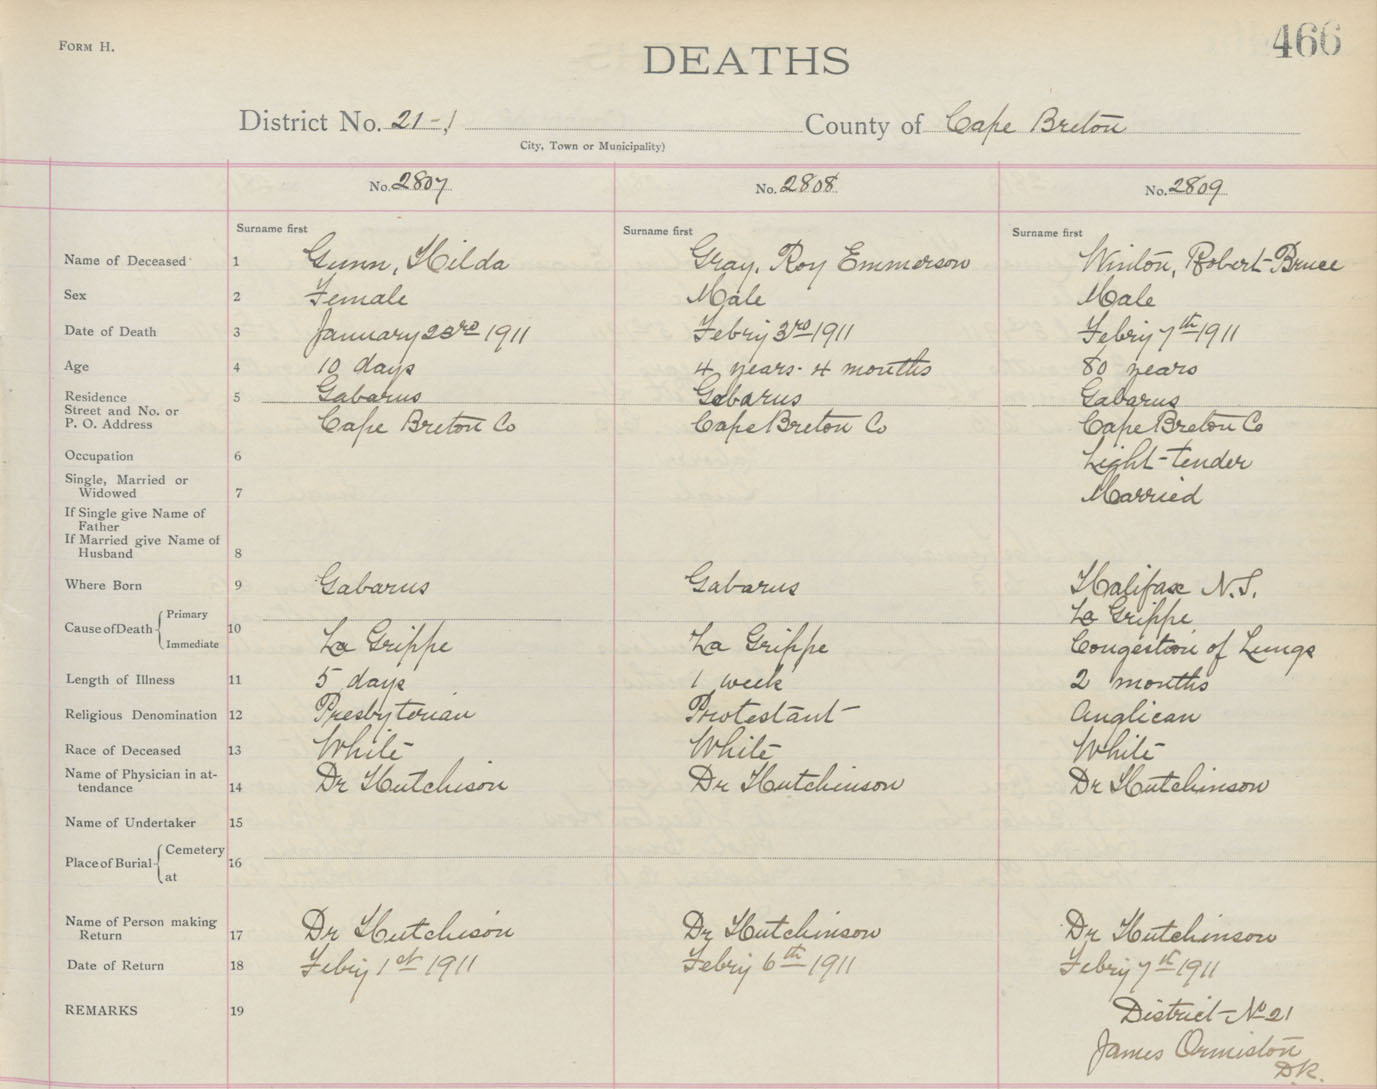 FORM H.
466
DEATHS
District No. 21-1
County of Cape Breton
City, Town or Municipality)
No. 2807 No. 2808 No. 2809
Surname first Surname first Surname first
Name of Deceased 1 Gunn, Hilda Gray, Roy Emmerson Winton, Robert Bruce
Sex 2 Female Male Male
Date of Death 3 January 23rd 1911 Febriy 3rd 1911 Febriy 7th 1911
Age 4 10 days 4 years 4 months 80 years
Residence 5 Gabarus Gabarus Gabarus
Street and No. or
P. O. Address Cape Breton Co Cape Breton Co Cape Breton Co
Occupation 6 Light-tender
Single, Married or
Widowed 7 Married
If Single give Name of
Father
If Married give Name of
Husband 8
Where Born 9 Gabarus Gabarus Halifax N.S.
Cause of Death 10 Primary La Grippe
Immediate La Grippe La Grippe Congestion of Lungs
Length of Illness 11 5 days 1 week 2 months
Religious Denomination 12 Presbyterian Protestant Anglican
Race of Deceased 13 White White White
Name of Physician in at-
tendance 14 Dr Hutchison Dr Hutchinson Dr Hutchinson
Name of Undertaker 15
Place of Burial 16 Cemetery
at
Name of Person making
Return 17 Dr Hutchison Dr Hutchinson Dr Hutchinson
Date of Return 18 Febriy 1st 1911 Febriy 6th 1911 Febriy 7th 1911
REMARKS 19 District No 21
James Ormiston
DR.